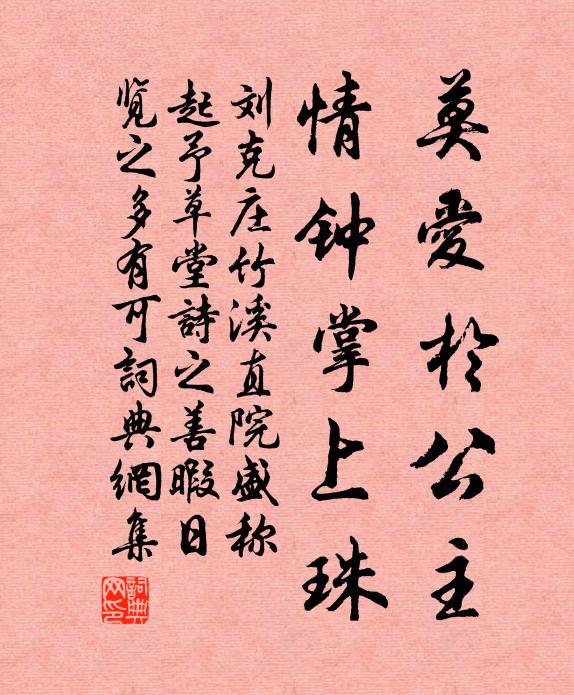 莫愛於公主
情钟掌上珠
刘克庄竹溪直院盛称
起予草堂詩之善暇日
览之多有可詞典網集
詞典网印